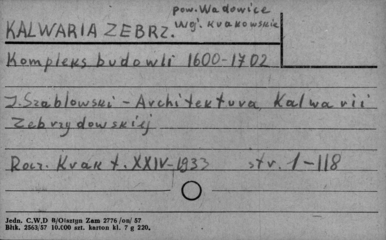 pow. Wadowice
Wg'. Krakowskie
KALWARIA ZEBRZ.
Kompleks budowli 1600-1702
J. Szablowski - Architektura Kalwarii
Zebrzydowskiej
Rocz. Krak t. XXIV-1933 str. 1-118
Jedn. C,W,D R/Olsztyn Zam 2776/oo/57
Bhk. 2563/57 10.000 szt. karton kl. 7 g 220.